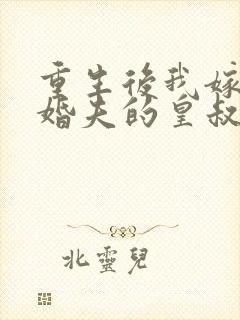 重生後我嫁
婚夫的皇叔
北靈兒